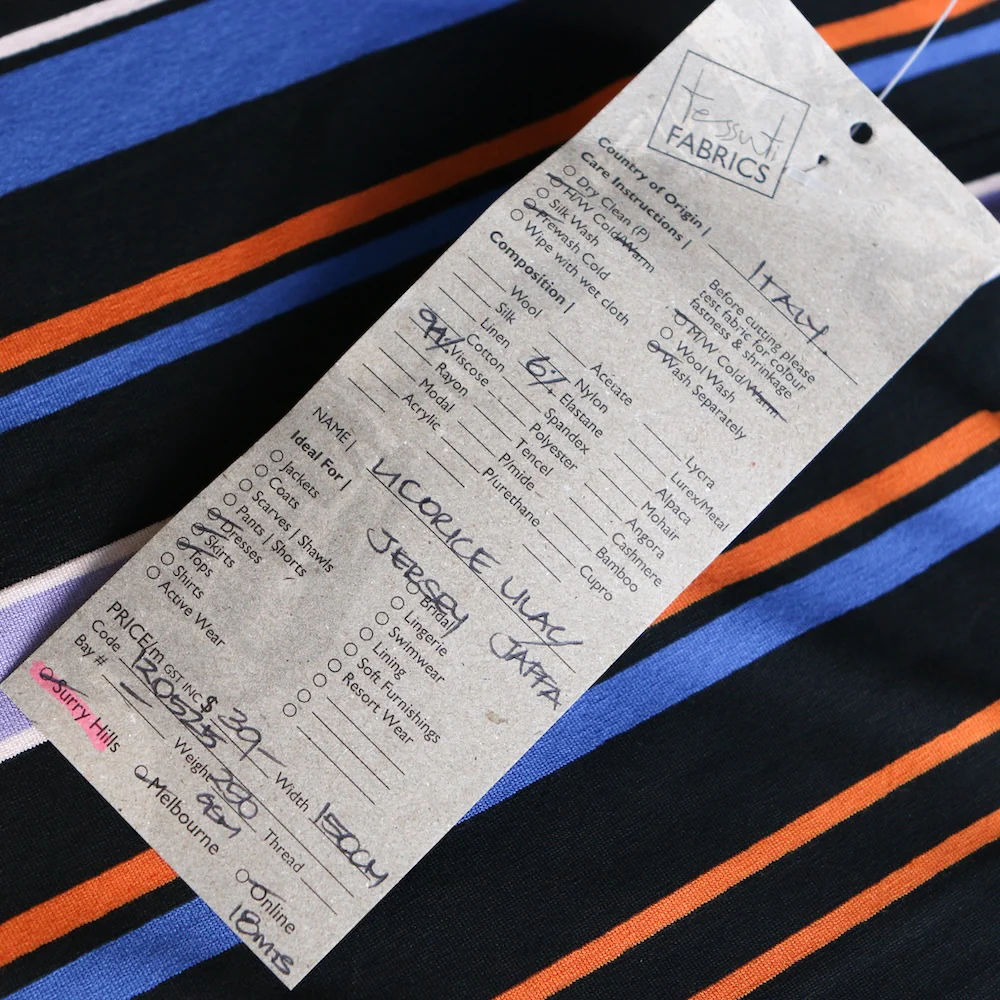 Tessuti
FABRICS
Country of Origin | ITALY.
Care Instructions |
Dry Clean (P)
H/W Cold/Warm
Silk Wash
Prewash Cold
Wipe with wet cloth
Before cutting please
test fabric for colour
fastness & shrinkage
M/W Cold/Warm
Wool Wash
Wash Separately
Composition |
Wool
Silk
Linen
Cotton
94% Viscose
Rayon
Modal
Acrylic
Acetate
Nylon
6% Elastane
Spandex
Polyester
Tencel
P/mide
P/urethane
Lycra
Lurex/Metal
Alpaca
Mohair
Angora
Cashmere
Bamboo
Cupro
NAME | LICORICE LILAC/
JERSEY JAFFA
Ideal For |
Jackets
Coats
Scarves | Shawls
Pants | Shorts
Dresses
Skirts
Tops
Shirts
Active Wear
Bridal
Lingerie
Swimwear
Lining
Soft Furnishings
Resort Wear
PRICE/m GST INC $ 39—
Code 120525
Bay #
Width 150CM
Weight 250
GSM
Thread
Surry Hills
Melbourne
Online
18MTS